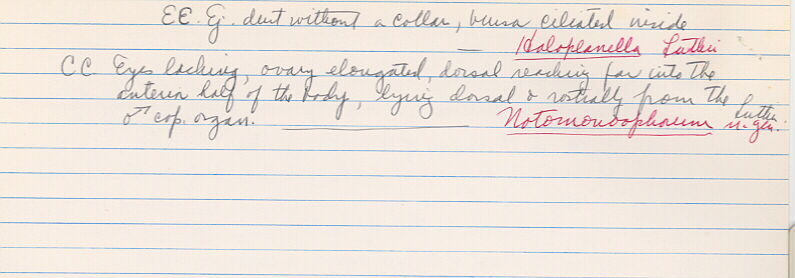 EE. Ej. duct without a collar, bursa ciliated inside
— Haloplanella Luther
CC Eyes lacking, ovary elongated, dorsal reaching far into the
anterior half of the body, lying dorsal & rostrally from the Luther
♂ cop. organ. — Notomonoophorum n. gen.